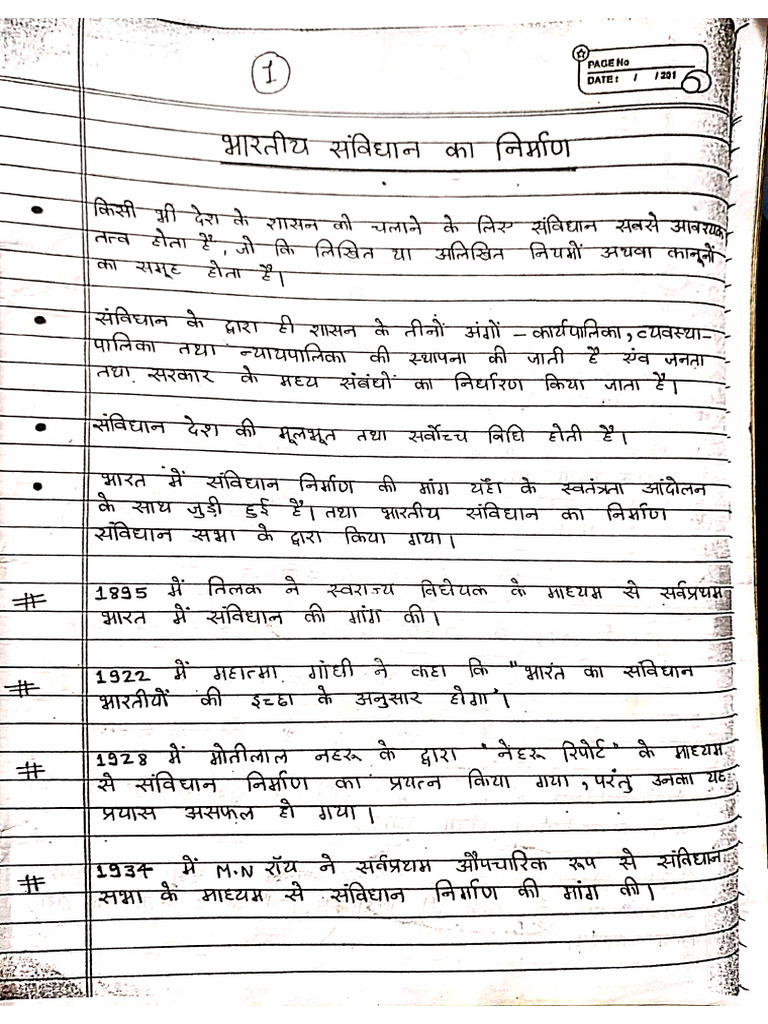 1
PAGE No
DATE: / /201
भारतीय संविधान का निर्माण
किसी भी देश के शासन को चलाने के लिए संविधान सबसे आवश्यक
तत्व होता है, जो कि लिखित या अलिखित नियमों अथवा कानूनों
का समूह होता है।
संविधान के द्वारा ही शासन के तीनों अंगों - कार्यपालिका, व्यवस्था-
पालिका तथा न्यायपालिका की स्थापना की जाती है एंव जनता
तथा सरकार के मध्य संबंधों का निर्धारण किया जाता है।
संविधान देश की मूलभूत तथा सर्वोच्च विधि होती है।
भारत में संविधान निर्माण की मांग यहाँ के स्वतंत्रता आंदोलन
के साथ जुड़ी हुई है। तथा भारतीय संविधान का निर्माण
संविधान सभा के द्वारा किया गया।
# 1895 में तिलक ने स्वराज्य विधेयक के माध्यम से सर्वप्रथम
भारत में संविधान की मांग की।
# 1922 में महात्मा गांधी ने कहा कि "भारत का संविधान
भारतीयों की इच्छा के अनुसार होगा"।
# 1928 में मोतीलाल नेहरू के द्वारा "नेहरू रिपोर्ट" के माध्यम
से संविधान निर्माण का प्रयत्न किया गया, परंतु उनका यह
प्रयास असफल हो गया।
# 1934 में M.N रॉय ने सर्वप्रथम औपचारिक रूप से संविधान
सभा के माध्यम से संविधान निर्माण की मांग की।